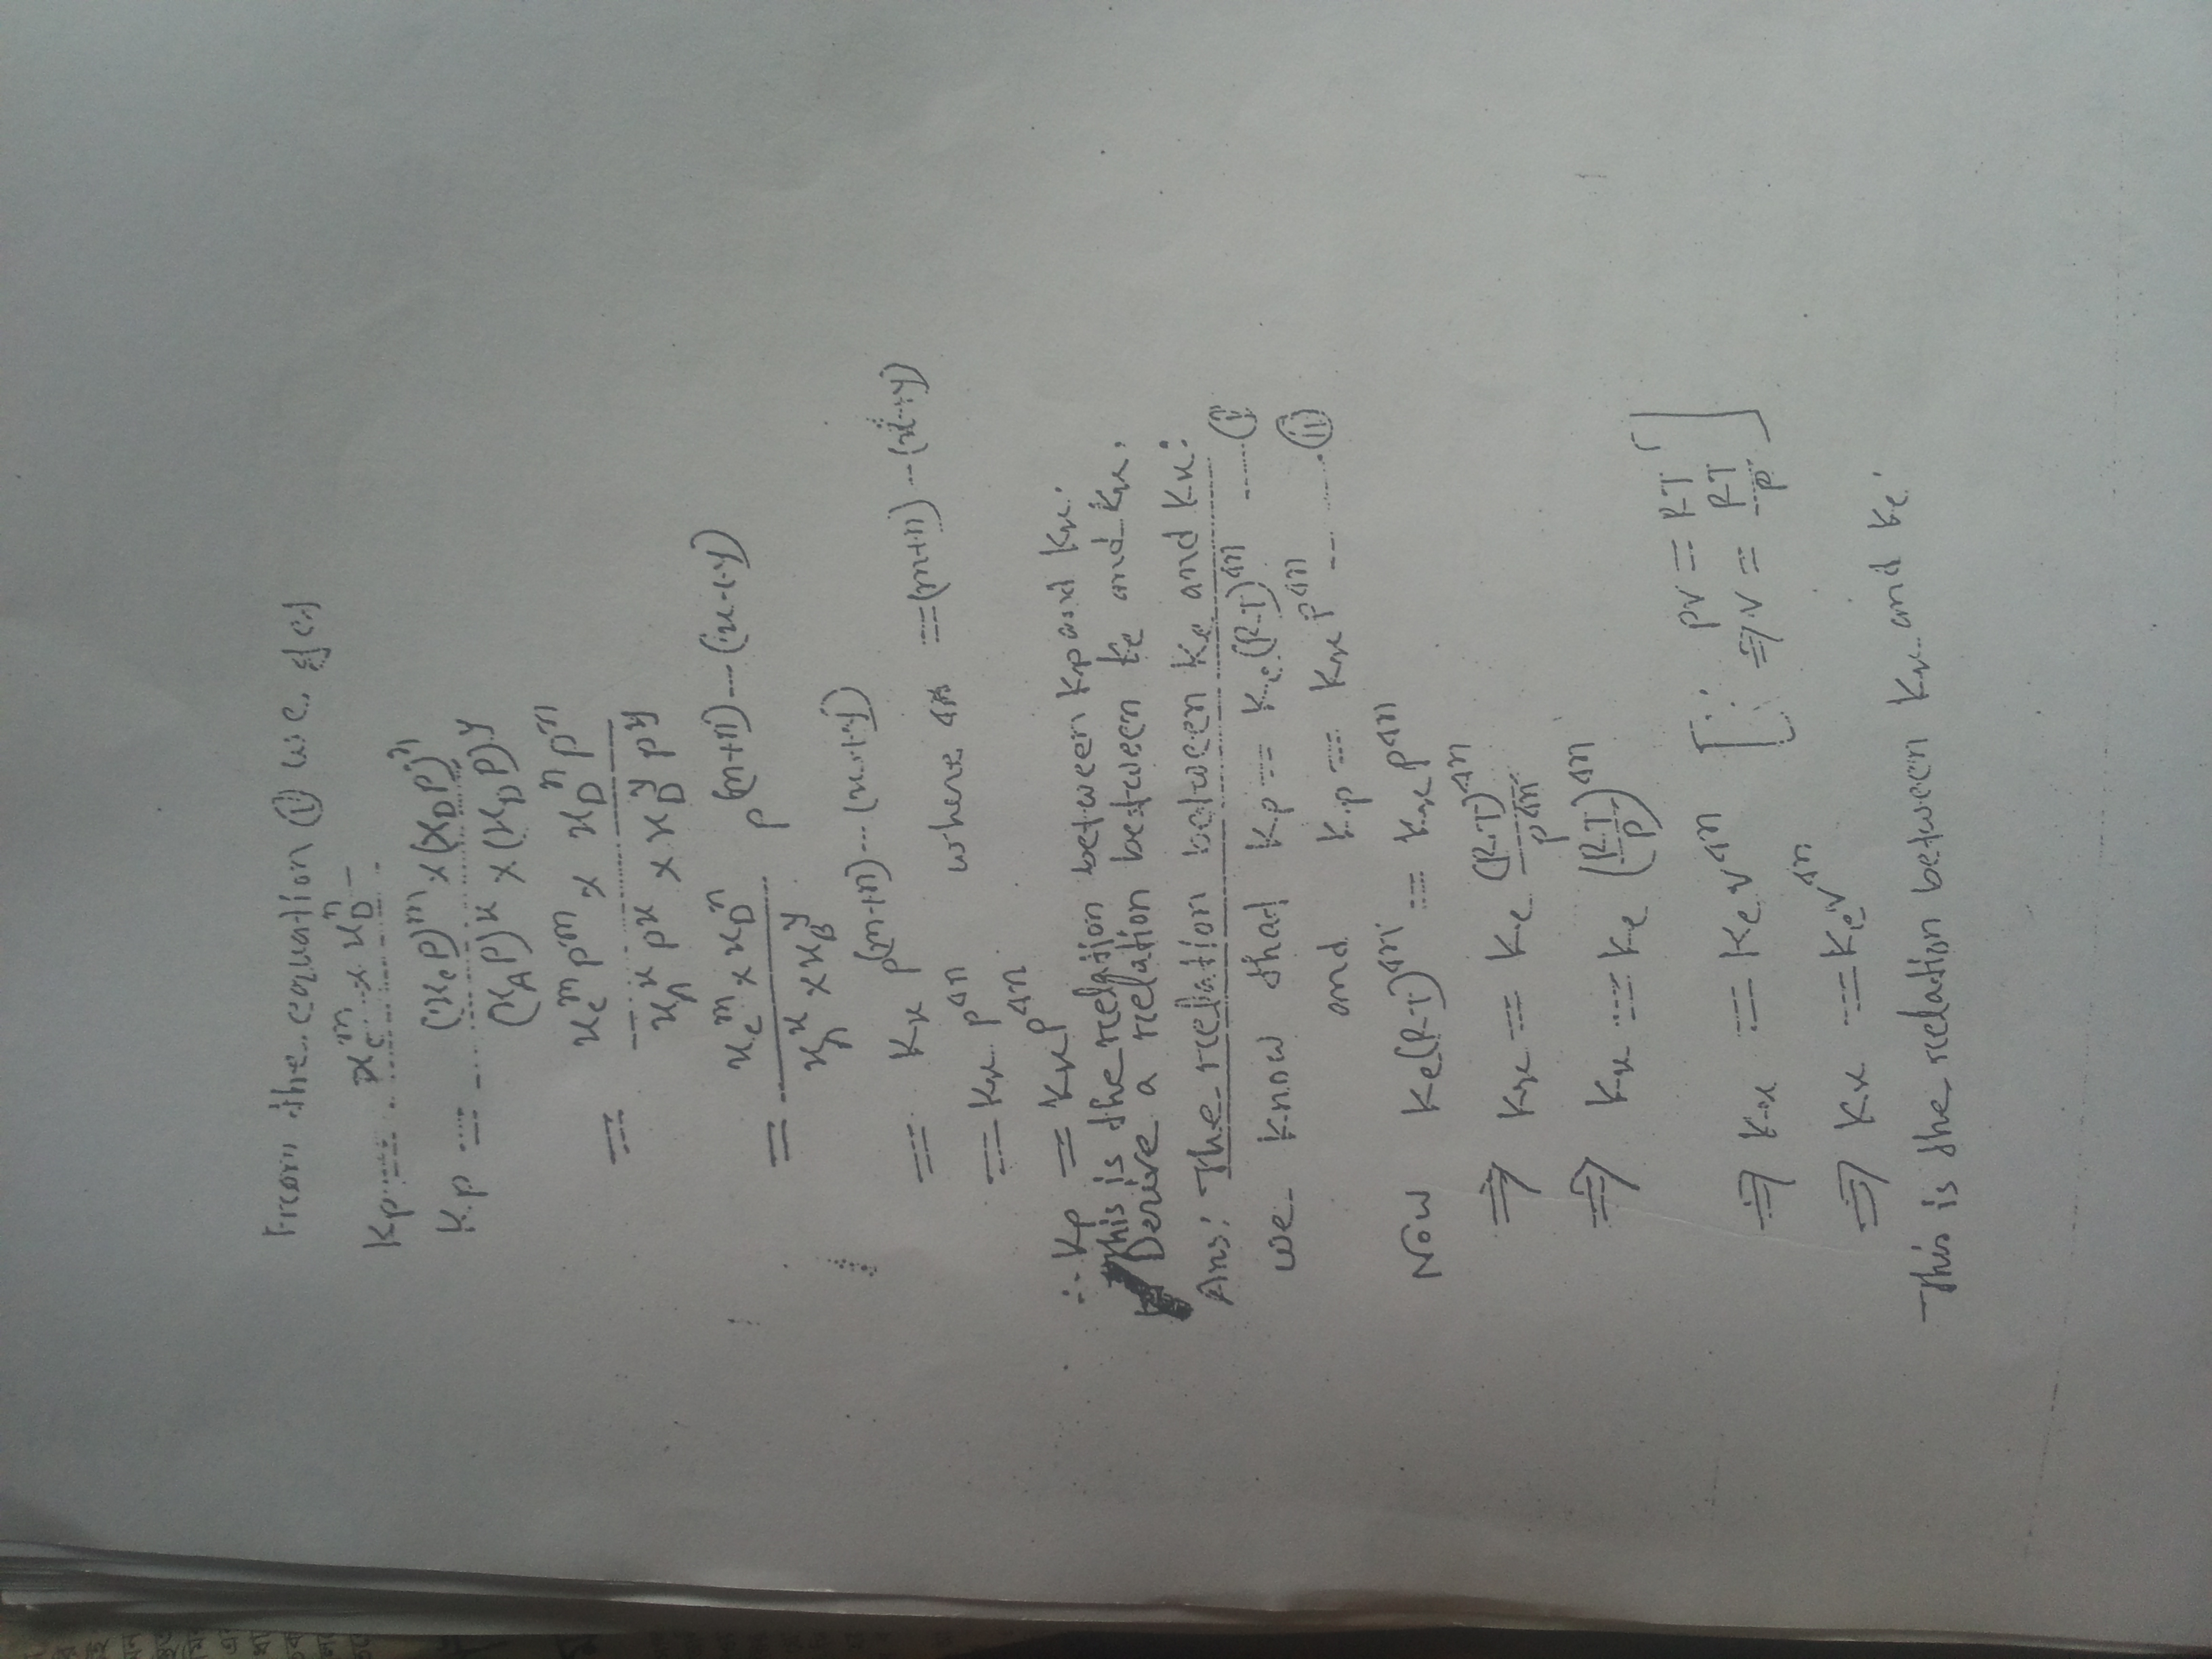 From the equation ① we get
Kp = x_C^m × x_D^n
Kp = (x_C P)^m × (x_D P)^n / (x_A P)^x × (x_D P)^y
= x_C^m P^m × x_D^n P^n / x_A^x P^x × x_D^y P^y
= x_C^m × x_D^n / x_A^x × x_B^y P^(m+n) - (x+y)
= Kx P^(m+n) - (x+y)
= Kx P^Δn where Δn = (m+n) - (x+y)
∴ Kp = Kx P^Δn
This is the relation between Kp and Kx.
Derive a relation between Kc and Kx.
Ans: The relation between Kc and Kx:
we know that Kp = Kc (RT)^Δn ------ ①
and Kp = Kx P^Δn ------ ⑪
Now Kc (RT)^Δn = Kx P^Δn
⇒ Kx = Kc (RT)^Δn / P^Δn
⇒ Kx = Kc (RT/P)^Δn
⇒ Kx = Kc V^Δn [∵ PV = RT
⇒ V = RT/P]
⇒ Kx = Kc V^Δn
This is the relation between Kx and Kc.